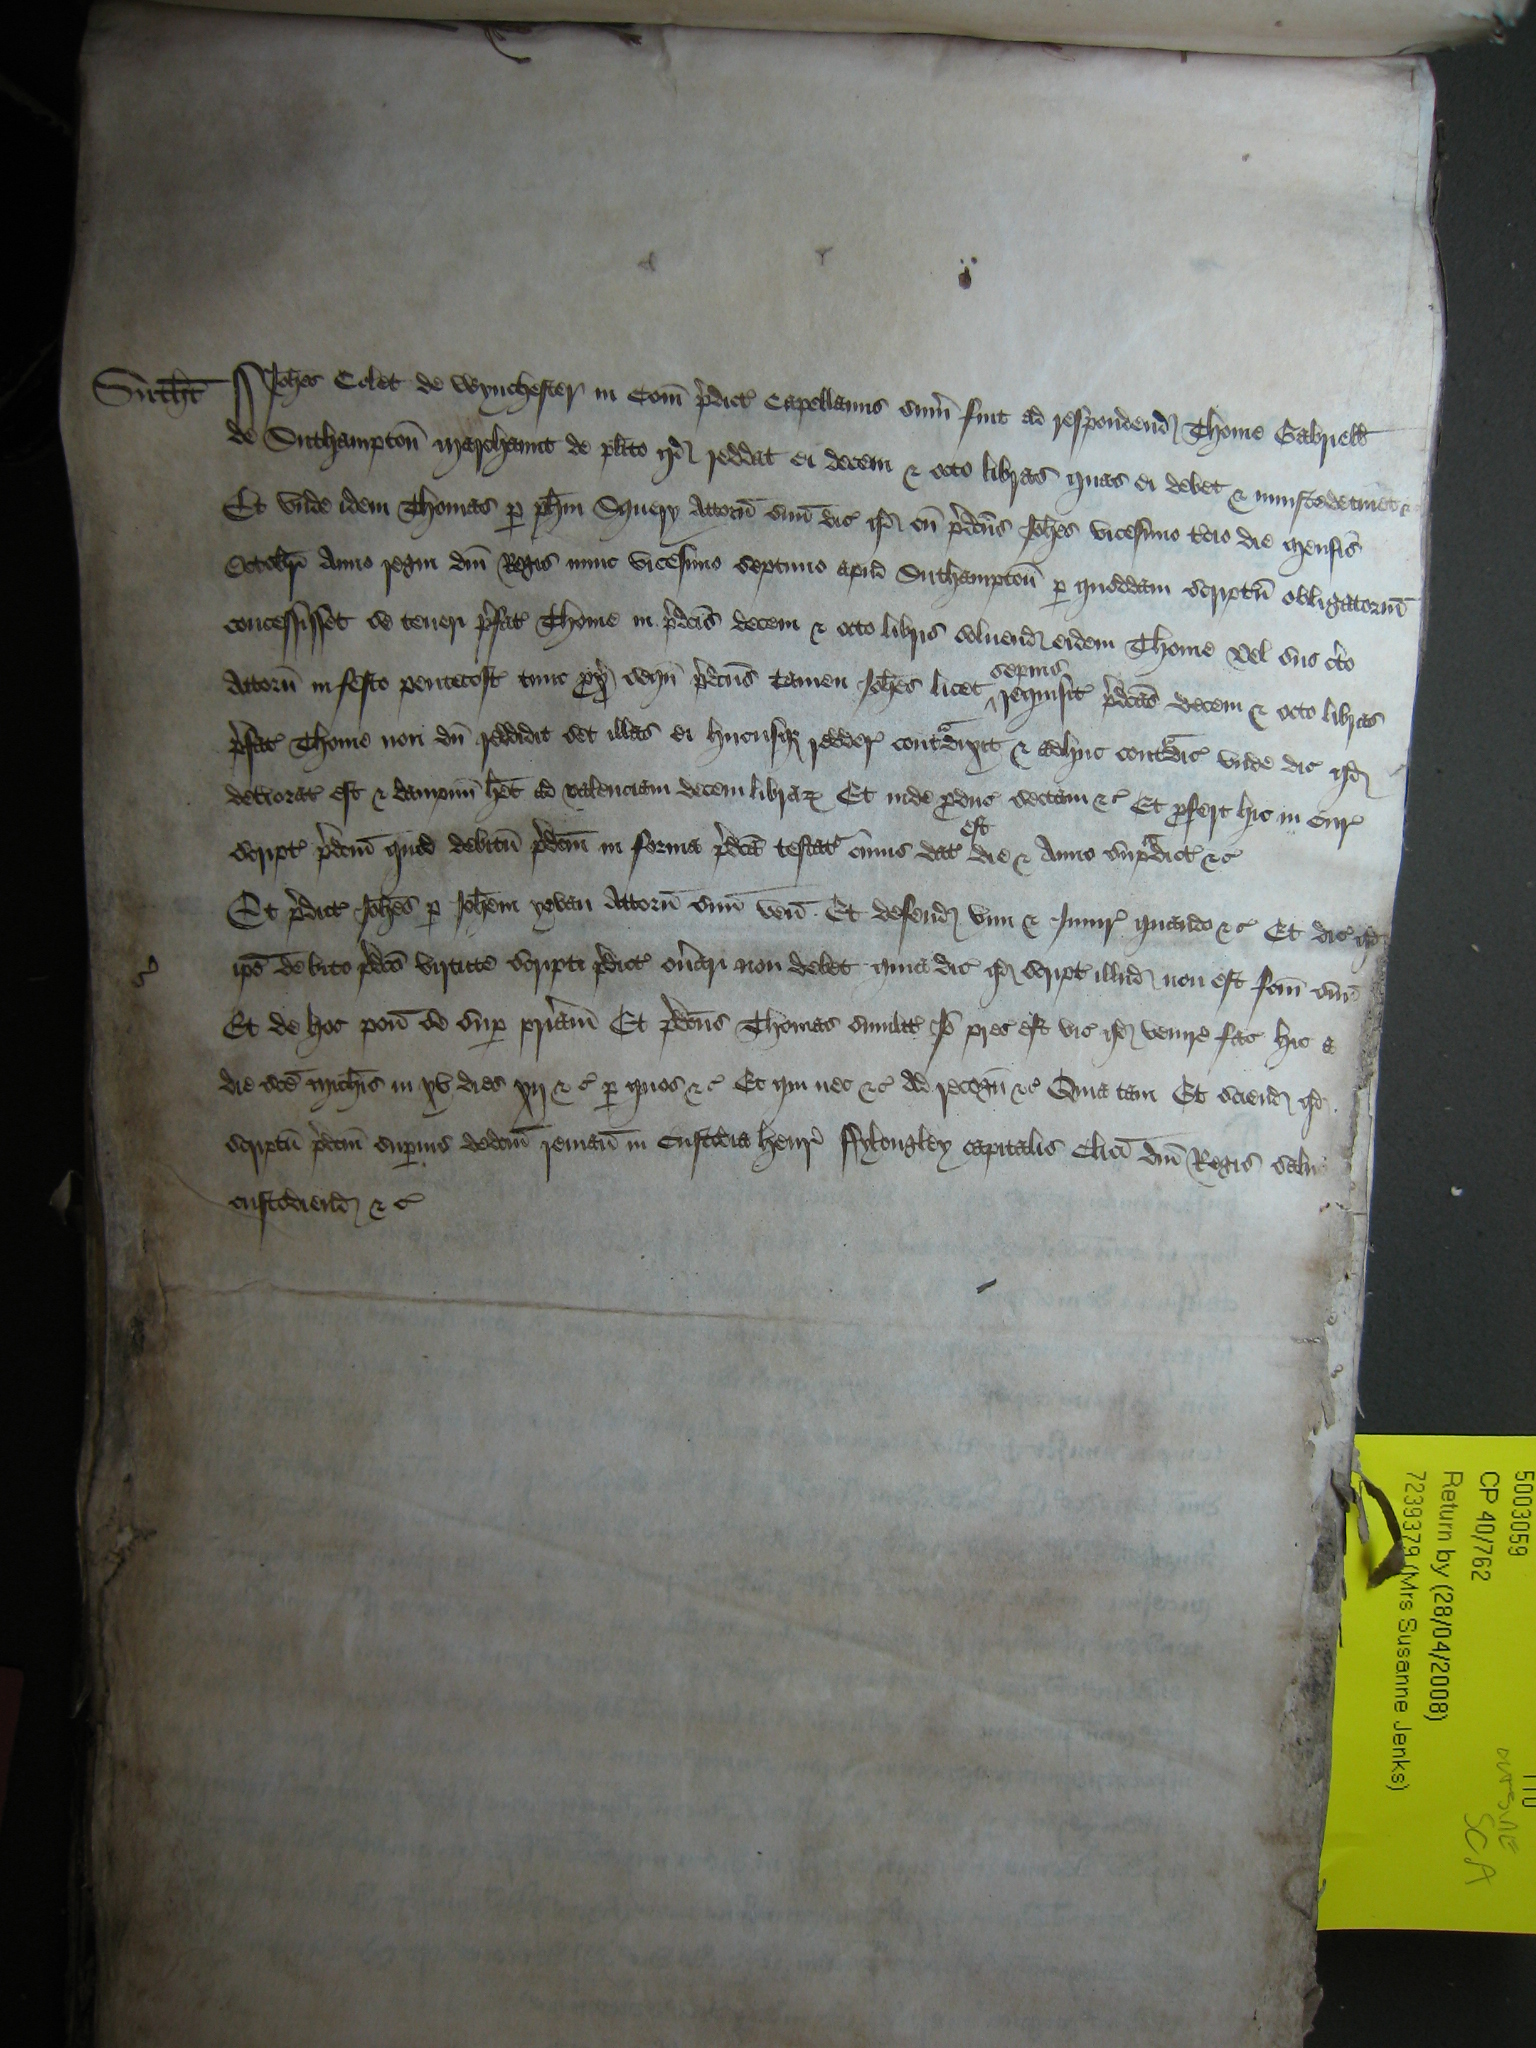 Sutht̄ Joħes Colet de Wynchester in Com̄ p̄dict Capellanus sum̄ fuit ad respondend Thome Gabriell
de Suthampton̄ marchaunt de pl̄ito qd reddat ei decem & octo libras quas ei debet & iniuste detinet &c
Et vnde idem Thomas p Ph̄m Squery Attorn̄ suū dic qd cū p̄dc̄us Joħes vicesimo t̄cio die mensis
Octobr̄ Anno regni dn̄i Regis nunc vicesimo septimo apud Suthampton̄ p quoddam scriptū obligatoriū
concessisset se teneri p̄fat Thome in p̄dc̄is decem & octo libris soluend eidem Thome vel suo c̄to
Attorn̄ in festo Pentecost tunc px̄ sequn̄ p̄dc̄us tamen Joħes licet sepius requisit p̄dc̄as decem & octo libras
p̄fat Thome non dū reddidit set illas ei hucusq redder contadixit & adhuc contadic vnde dic qd
deteriorat est & dampnū h̄et ad valenciam decem librar Et inde pduc sectam &c Et pfert hic in Cur
script p̄dc̄m quod debitū p̄dc̄m in forma p̄dc̄a testat cuius dat est die & Anno supadict &c
Et p̄dict Joħes p Joħem Attorn̄ suū ven̄ Et defend vim & Iniur quando &c Et dic qd
ip̄e de debito p̄dc̄o virtute scripti p̄dict on̄ari non debet quia dic qd script illud non est fc̄m suū
Et de hoc pon̄ se sup pr̄iam Et p̄dc̄us Thomas similit Io prec est vic qd venire fac hic a
die sc̄i Mich̄is in xv dies xij &c p quos &c Et qui nec &c Ad recogn̄ &c Quia tam Et sciend qd
scriptū p̄dc̄m supius dedc̄m reman̄ in Custodia Henr̄ Fylongley capitalis Clic̄i dn̄i Regis saluo
custodiend &c
5003059
CP 40/762
Return by (28/04/2008)
7239379 (Mrs Susanne Jenks)
outsize
SCA